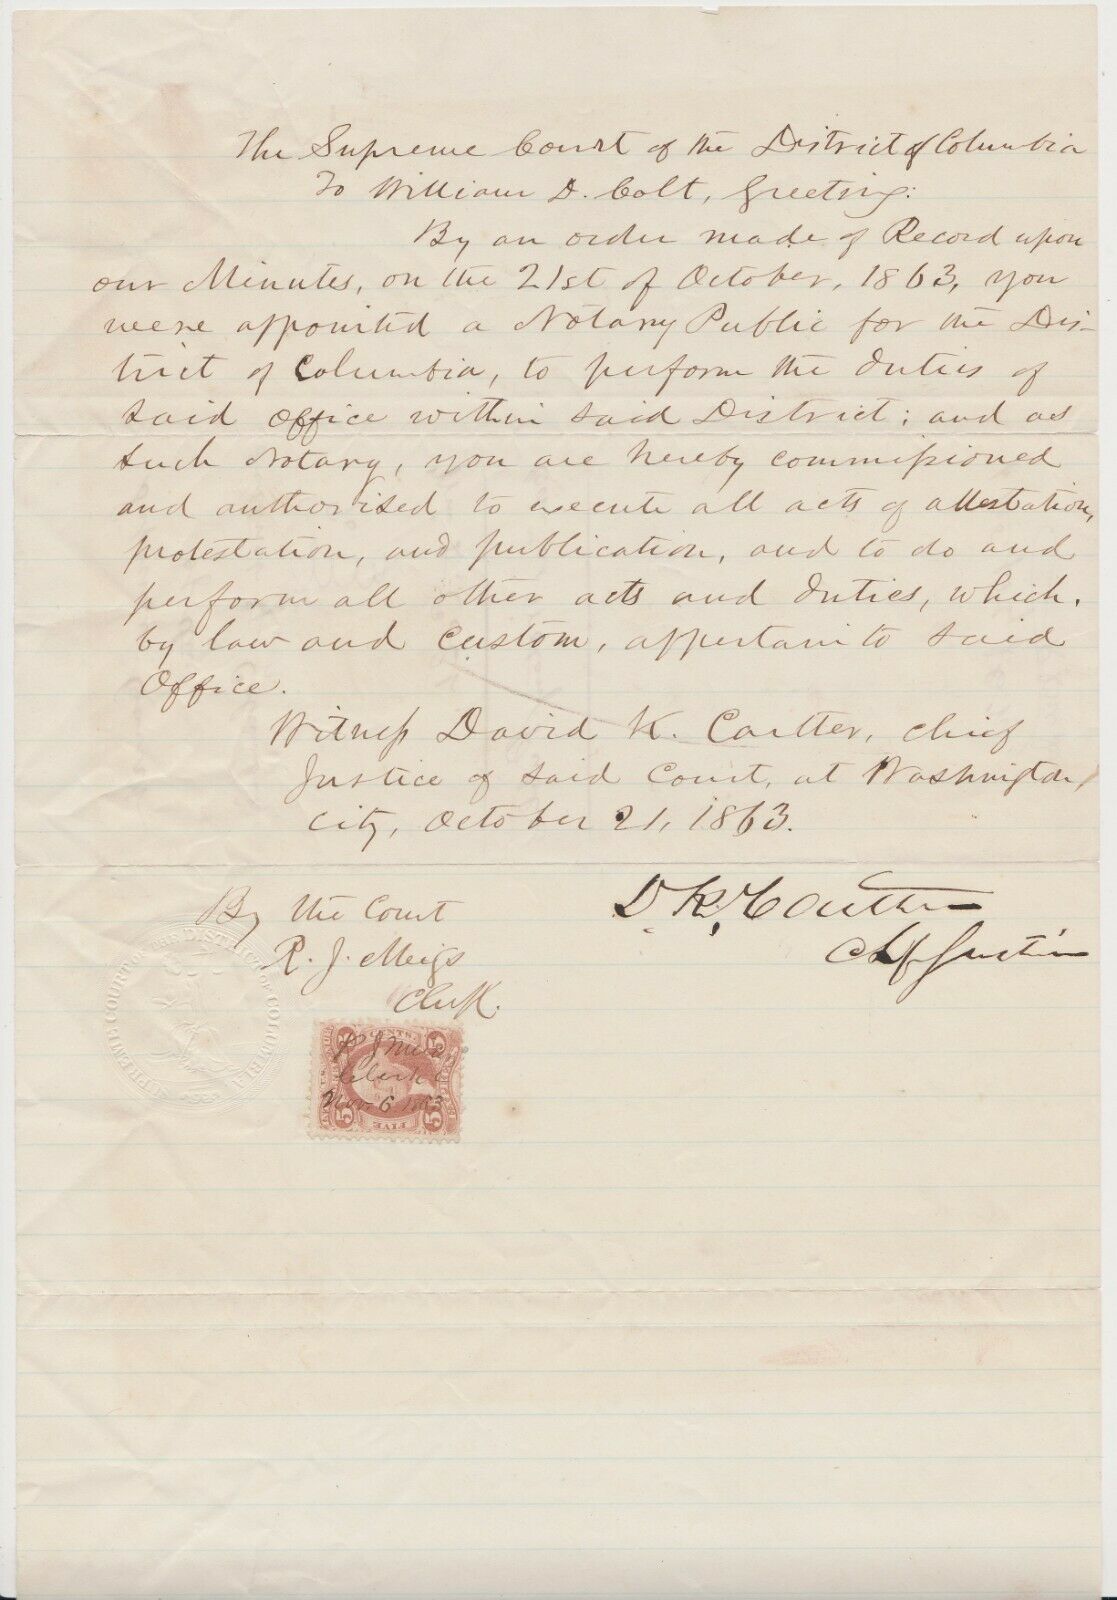 The Supreme Court of the District of Columbia
To William D. Colt, Greeting:
By an order made of Record upon
our Minutes, on the 21st of October, 1863, you
were appointed a Notary Public for the Dis-
trict of Columbia, to perform the duties of
said office within said District; and as
such Notary, you are hereby commissioned
and authorised to execute all acts of attestation,
protestation, and publication, and to do and
perform all other acts and duties, which,
by law and custom, appertain to said
Office.
Witness David K. Cartter, Chief
Justice of said Court, at Washington
City, October 21, 1863.
By the Court
R. J. Meigs
Clerk.
D. K. Cartter
Chf Justice
SUPREME COURT OF THE DISTRICT OF COLUMBIA
5 CENTS 5
R J Meigs
Clerk
Nov. 6 1863
5 FIVE 5